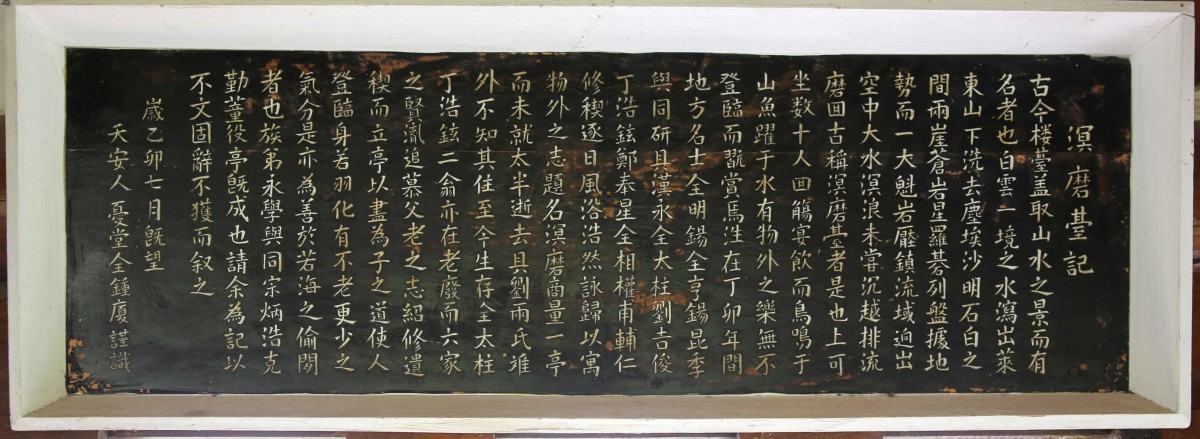 溟磨臺記
古今楼臺盖取山水之景而有
名者也白雲一境之水瀉出萊
東山下洗去塵埃沙明石白之
間兩崖蒼岩星羅碁列盤據地
勢而一大魁岩壓鎮流域迫出
空中大水溟浪未甞沉越排流
磨回古稱溟磨臺者是也上可
坐数十人回觴宴飮而鳥鳴于
山魚躍于水有物外之樂無不
登臨而翫賞焉泩在丁卯年間
地方名士全明錫全亨錫昆季
與同研具漢永全太柱劉吉俊
丁浩鉉鄭奉星全相權甫輔仁
修稧逐日風浴浩然詠歸以寓
物外之志題名溟磨商量一亭
而未就太半逝去具劉兩氏雖
外不知其住至今生存全太柱
丁浩鉉二翁亦在老廢而六家
之賢胤追慕父老之志紹修遺
稧而立亭以盡為子之道使人
登臨身若羽化有不老更少之
氣分是亦為善於若海之偷閑
者也族弟永學與同宗炳浩克
勤董役亭旣成也請余為記以
不文固辭不獲而叙之
歲乙卯七月旣望
天安人憂堂全鍾厦謹識